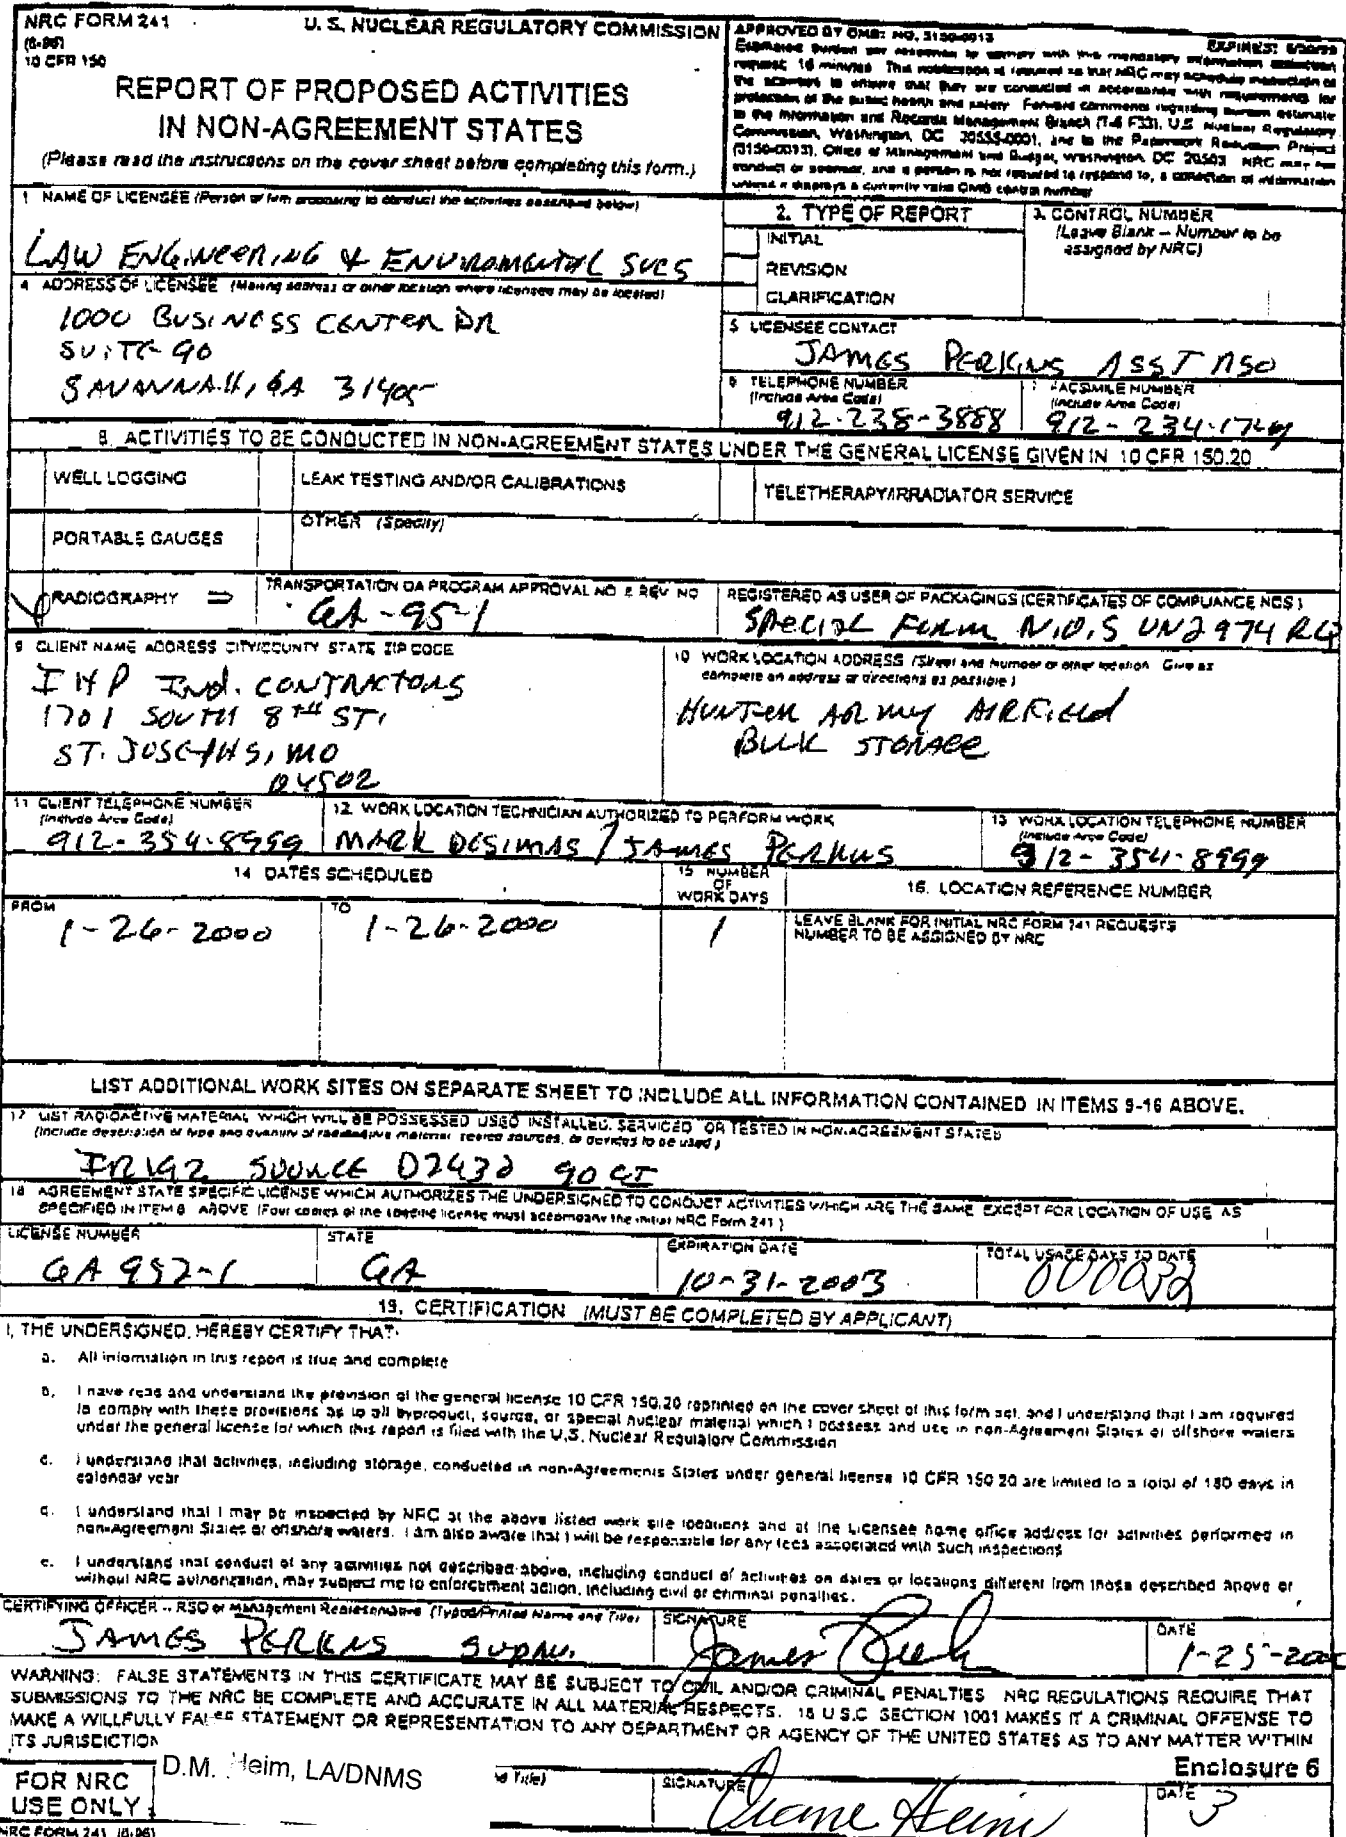 NRC FORM 241
(6-96)
10 CFR 150
U. S. NUCLEAR REGULATORY COMMISSION
REPORT OF PROPOSED ACTIVITIES
IN NON-AGREEMENT STATES
(Please read the instructions on the cover sheet before completing this form.)
APPROVED BY OMB: NO. 3150-0013
EXPIRES:
Estimated burden per response to comply with this mandatory information collection
request: 15 minutes. This notification is required so that NRC may schedule inspection of
the activities to ensure that they are conducted in accordance with requirements for
protection of the public health and safety. Forward comments regarding burden estimate
to the Information and Records Management Branch (T-6 F33), U.S. Nuclear Regulatory
Commission, Washington, DC 20555-0001, and to the Paperwork Reduction Project
(3150-0013), Office of Management and Budget, Washington, DC 20503. NRC may not
conduct or sponsor, and a person is not required to respond to, a collection of information
unless it displays a currently valid OMB control number
1 NAME OF LICENSEE (Person or firm proposing to conduct the activities described below)
LAW ENGINEERING & ENVIROMENTAL SVCS
2. TYPE OF REPORT
INITIAL
REVISION
CLARIFICATION
3. CONTROL NUMBER
(Leave Blank – Number to be
assigned by NRC)
4 ADDRESS OF LICENSEE (Mailing address or other location where licensee may be located)
1000 BUSINESS CENTER DR
SUITE 90
SAVANNAH, GA 31405
5 LICENSEE CONTACT
JAMES PERKINS ASST RSO
6 TELEPHONE NUMBER
(Include Area Code)
912-238-3888
7 FACSIMILE NUMBER
(Include Area Code)
912-234-17
8. ACTIVITIES TO BE CONDUCTED IN NON-AGREEMENT STATES UNDER THE GENERAL LICENSE GIVEN IN 10 CFR 150.20
WELL LOGGING
LEAK TESTING AND/OR CALIBRATIONS
TELETHERAPY/IRRADIATOR SERVICE
PORTABLE GAUGES
OTHER (Specify)
RADIOGRAPHY ⇒
TRANSPORTATION QA PROGRAM APPROVAL NO & REV NO
GA-95-1
REGISTERED AS USER OF PACKAGINGS (CERTIFICATES OF COMPLIANCE NOS)
SPECIAL FORM N.O.S UN2974 RQ
9 CLIENT NAME ADDRESS CITY/COUNTY STATE ZIP CODE
IHP IND. CONTRACTORS
1701 SOUTH 8TH ST.
ST. JOSEPHS, MO
04502
10 WORK LOCATION ADDRESS (Street and Number or other location. Give as
complete an address or directions as possible)
HUNTER ARMY AIRFIELD
BULK STORAGE
11 CLIENT TELEPHONE NUMBER
(Include Area Code)
912-354-8999
12. WORK LOCATION TECHNICIAN AUTHORIZED TO PERFORM WORK
MARK DESIMAS / JAMES PERKINS
13 WORK LOCATION TELEPHONE NUMBER
(Include Area Code)
912-354-8999
14 DATES SCHEDULED
15 NUMBER
OF
WORK DAYS
16. LOCATION REFERENCE NUMBER
FROM
1-26-2000
TO
1-26-2000
1
LEAVE BLANK FOR INITIAL NRC FORM 241 REQUESTS
NUMBER TO BE ASSIGNED BY NRC
LIST ADDITIONAL WORK SITES ON SEPARATE SHEET TO INCLUDE ALL INFORMATION CONTAINED IN ITEMS 9-16 ABOVE.
17 LIST RADIOACTIVE MATERIAL WHICH WILL BE POSSESSED USED INSTALLED, SERVICED OR TESTED IN NON-AGREEMENT STATES
(Include description of type and quantity of radioactive material, sealed sources, or devices to be used)
IR192 SOURCE D2432 90 CI
18 AGREEMENT STATE SPECIFIC LICENSE WHICH AUTHORIZES THE UNDERSIGNED TO CONDUCT ACTIVITIES WHICH ARE THE SAME EXCEPT FOR LOCATION OF USE AS
SPECIFIED IN ITEM 8 ABOVE (Four copies of the specific license must accompany the initial NRC Form 241)
LICENSE NUMBER
GA 952-1
STATE
GA
EXPIRATION DATE
10-31-2003
TOTAL USAGE DAYS TO DATE
000032
19. CERTIFICATION (MUST BE COMPLETED BY APPLICANT)
I, THE UNDERSIGNED, HEREBY CERTIFY THAT:
a. All information in this report is true and complete
b. I have read and understand the provision of the general license 10 CFR 150.20 reprinted on the cover sheet of this form set, and I understand that I am required
to comply with these provisions as to all byproduct, source, or special nuclear material which I possess and use in non-Agreement States or offshore waters
under the general license for which this report is filed with the U.S. Nuclear Regulatory Commission
c. I understand that activities, including storage, conducted in non-Agreements States under general license 10 CFR 150 20 are limited to a total of 180 days in
calendar year
d. I understand that I may be inspected by NRC at the above listed work site locations and at the Licensee home office address for activities performed in
non-Agreement States or offshore waters. I am also aware that I will be responsible for any fees associated with such inspections
e. I understand that conduct of any activities not described above, including conduct of activities on dates or locations different from those described above or
without NRC authorization, may subject me to enforcement action, including civil or criminal penalties.
CERTIFYING OFFICER – RSO or Management Representative (Typed/Printed Name and Title)
JAMES PERKINS SUPRV.
SIGNATURE
James
DATE
1-25-2000
WARNING: FALSE STATEMENTS IN THIS CERTIFICATE MAY BE SUBJECT TO CIVIL AND/OR CRIMINAL PENALTIES NRC REGULATIONS REQUIRE THAT
SUBMISSIONS TO THE NRC BE COMPLETE AND ACCURATE IN ALL MATERIAL RESPECTS. 18 U S.C SECTION 1001 MAKES IT A CRIMINAL OFFENSE TO
MAKE A WILLFULLY FALSE STATEMENT OR REPRESENTATION TO ANY DEPARTMENT OR AGENCY OF THE UNITED STATES AS TO ANY MATTER WITHIN
ITS JURISDICTION
Enclosure 6
FOR NRC
USE ONLY
D.M. Heim, LA/DNMS
Title)
SIGNATURE
Diane Heim
DATE
3
NRC FORM 241 (6-96)